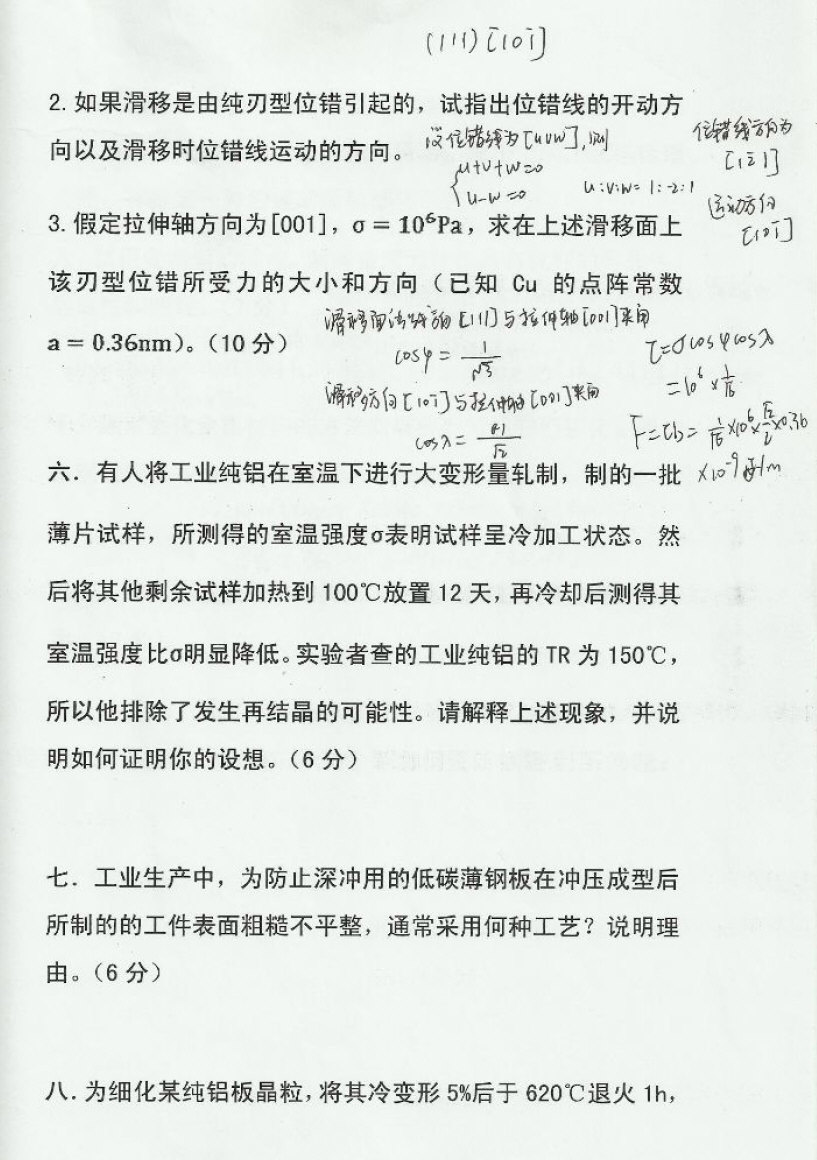 (111) [10ī]
2. 如果滑移是由纯刃型位错引起的，试指出位错线的开动方
向以及滑移时位错线运动的方向。
设位错线为[uvw],则
u+v+w=0
u-w=0
u:v:w=1:-2:1
位错线方向为
[12̄1]
运动方向
[101̄]
3. 假定拉伸轴方向为[001]，σ = 10⁶Pa，求在上述滑移面上
该刃型位错所受力的大小和方向（已知 Cu 的点阵常数
a = 0.36nm）。（10 分）
滑移面法线方向[111]与拉伸轴[001]夹角
cosφ = 1/√3
滑移方向[101̄]与拉伸轴[001]夹角
cosλ = 1/√2
τ=σcosφcosλ
=10⁶×1/√6
F=τb= 1/√6×10⁶×√2/2×0.36
×10⁻⁹
六．有人将工业纯铝在室温下进行大变形量轧制，制的一批
薄片试样，所测得的室温强度σ表明试样呈冷加工状态。然
后将其他剩余试样加热到 100℃放置 12 天，再冷却后测得其
室温强度比σ明显降低。实验者查的工业纯铝的 TR 为 150℃，
所以他排除了发生再结晶的可能性。请解释上述现象，并说
明如何证明你的设想。（6 分）
七．工业生产中，为防止深冲用的低碳薄钢板在冲压成型后
所制的的工件表面粗糙不平整，通常采用何种工艺？说明理
由。（6 分）
八．为细化某纯铝板晶粒，将其冷变形 5%后于 620℃退火 1h，